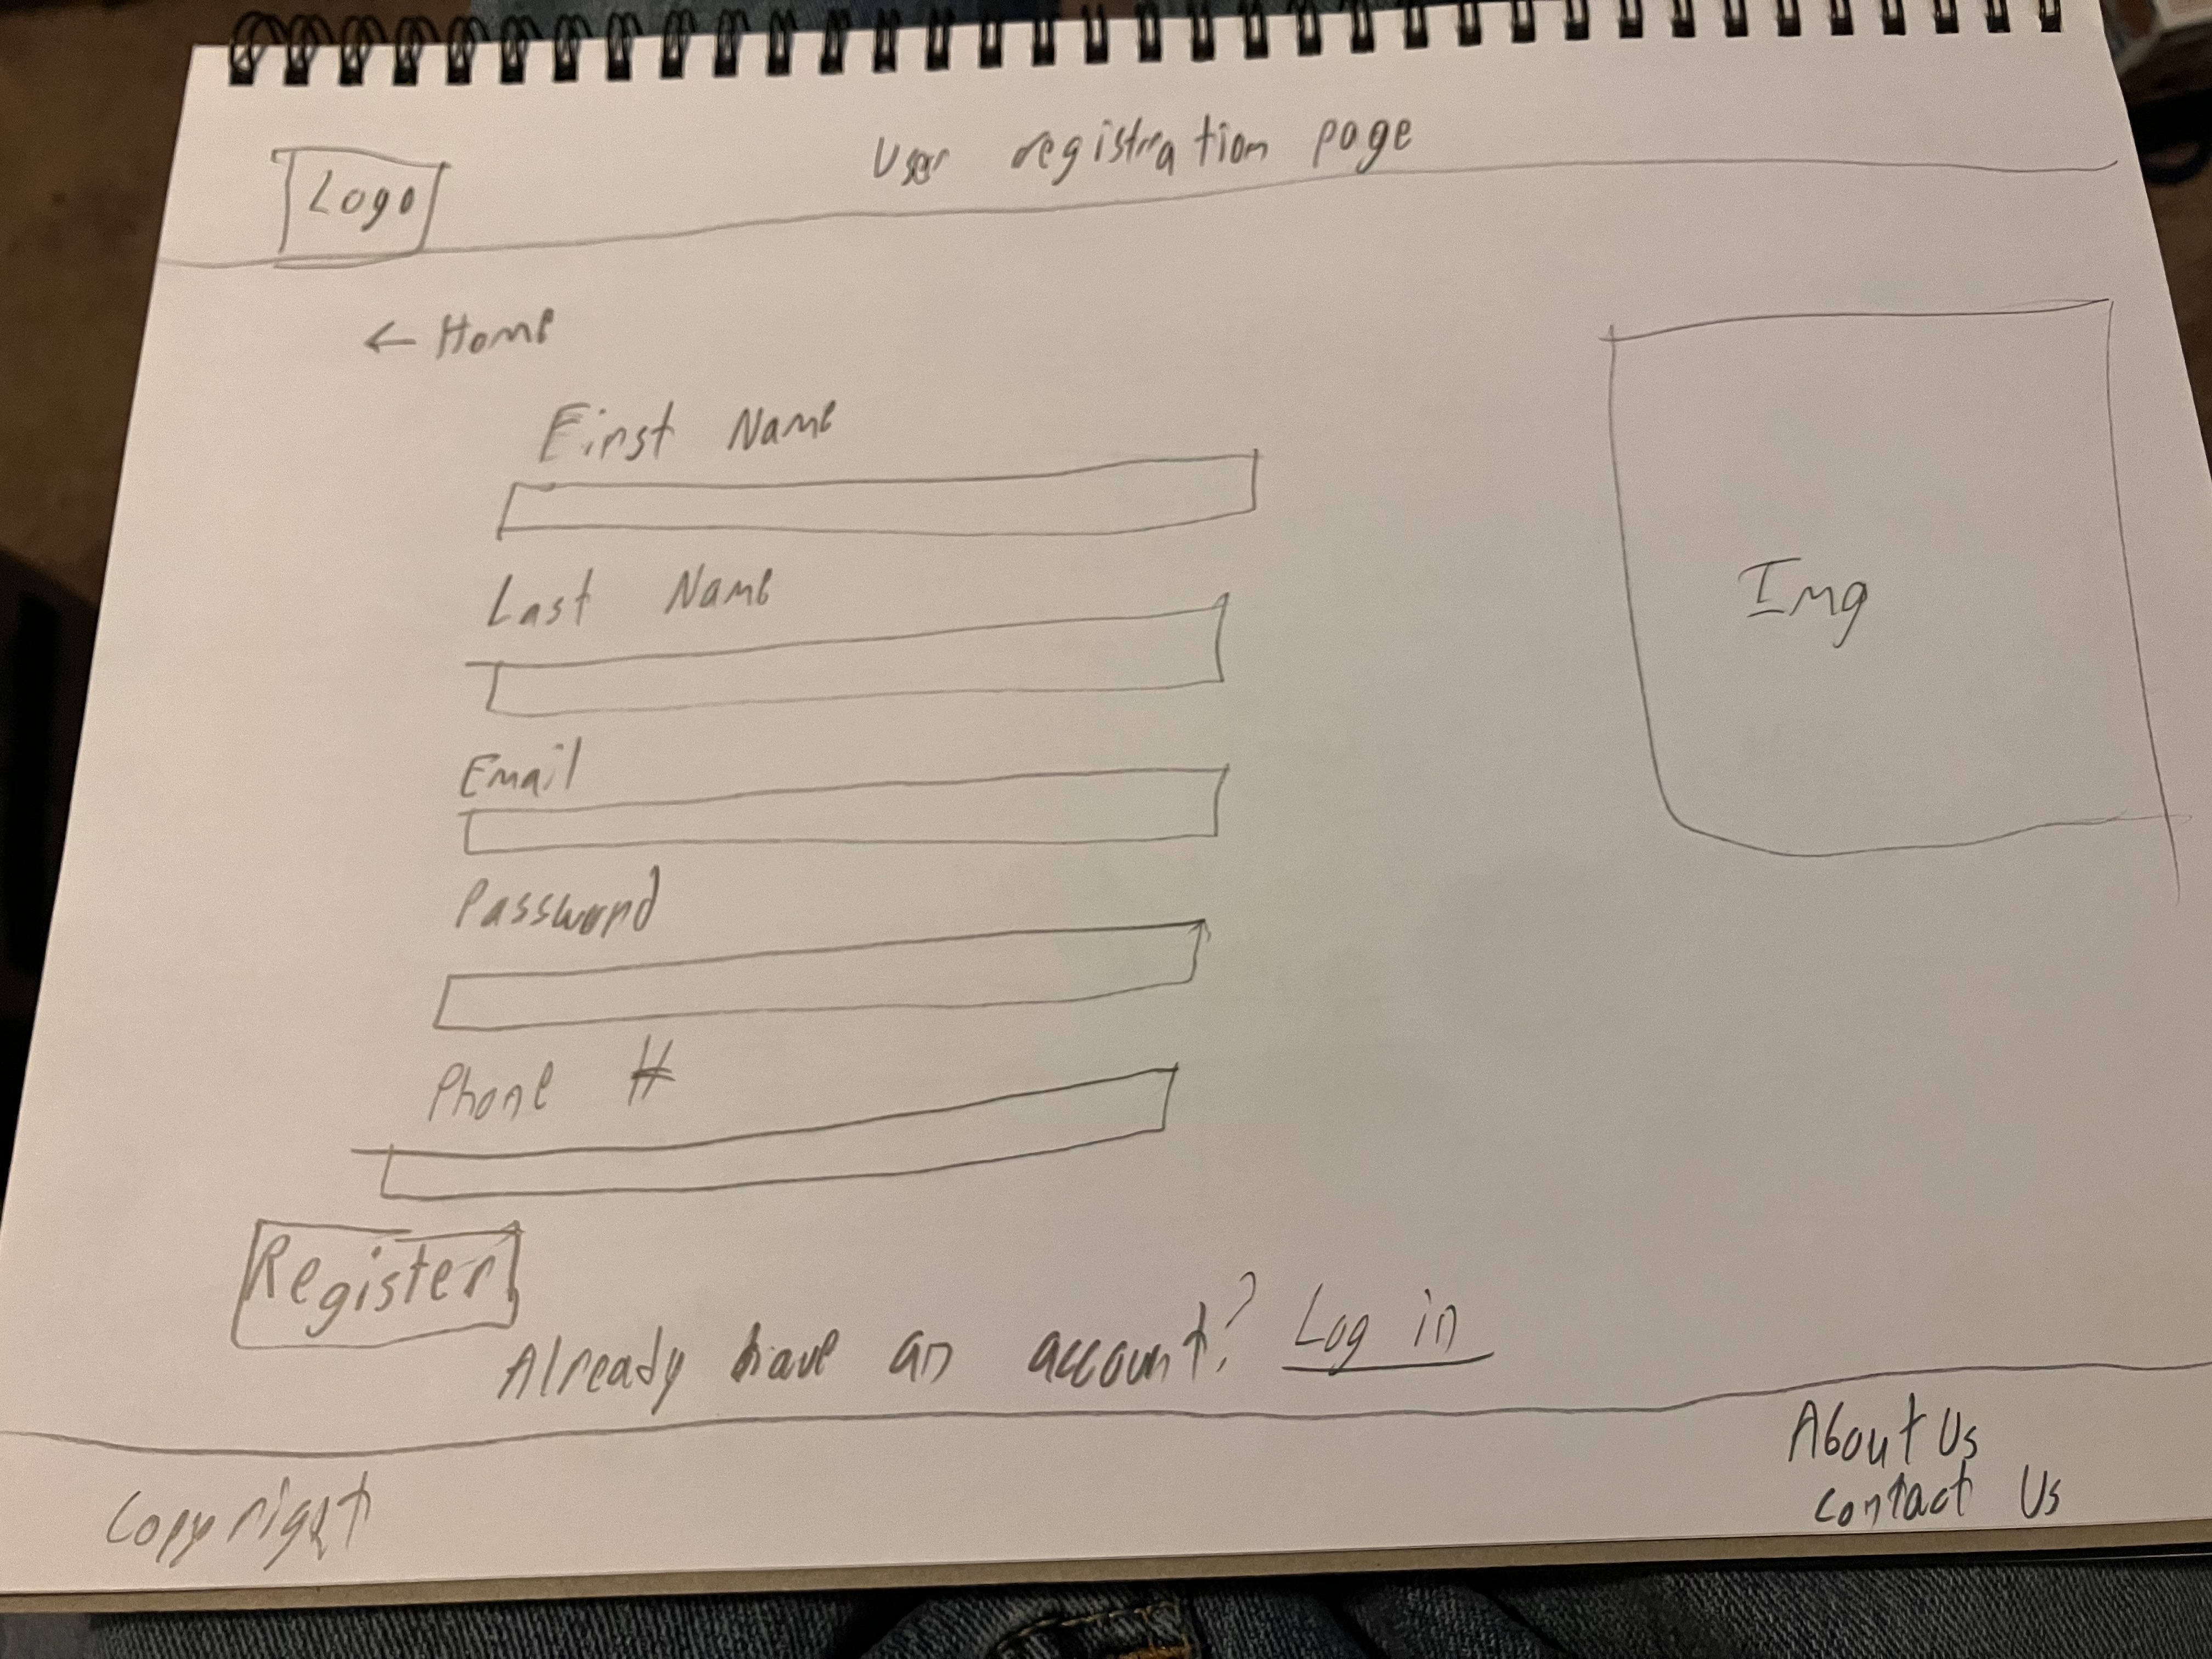 User registration page
Logo
← Home
First Name
Last Name
Email
Password
Phone #
Register
Already have an account? Log in
About Us
Contact Us
Copyright